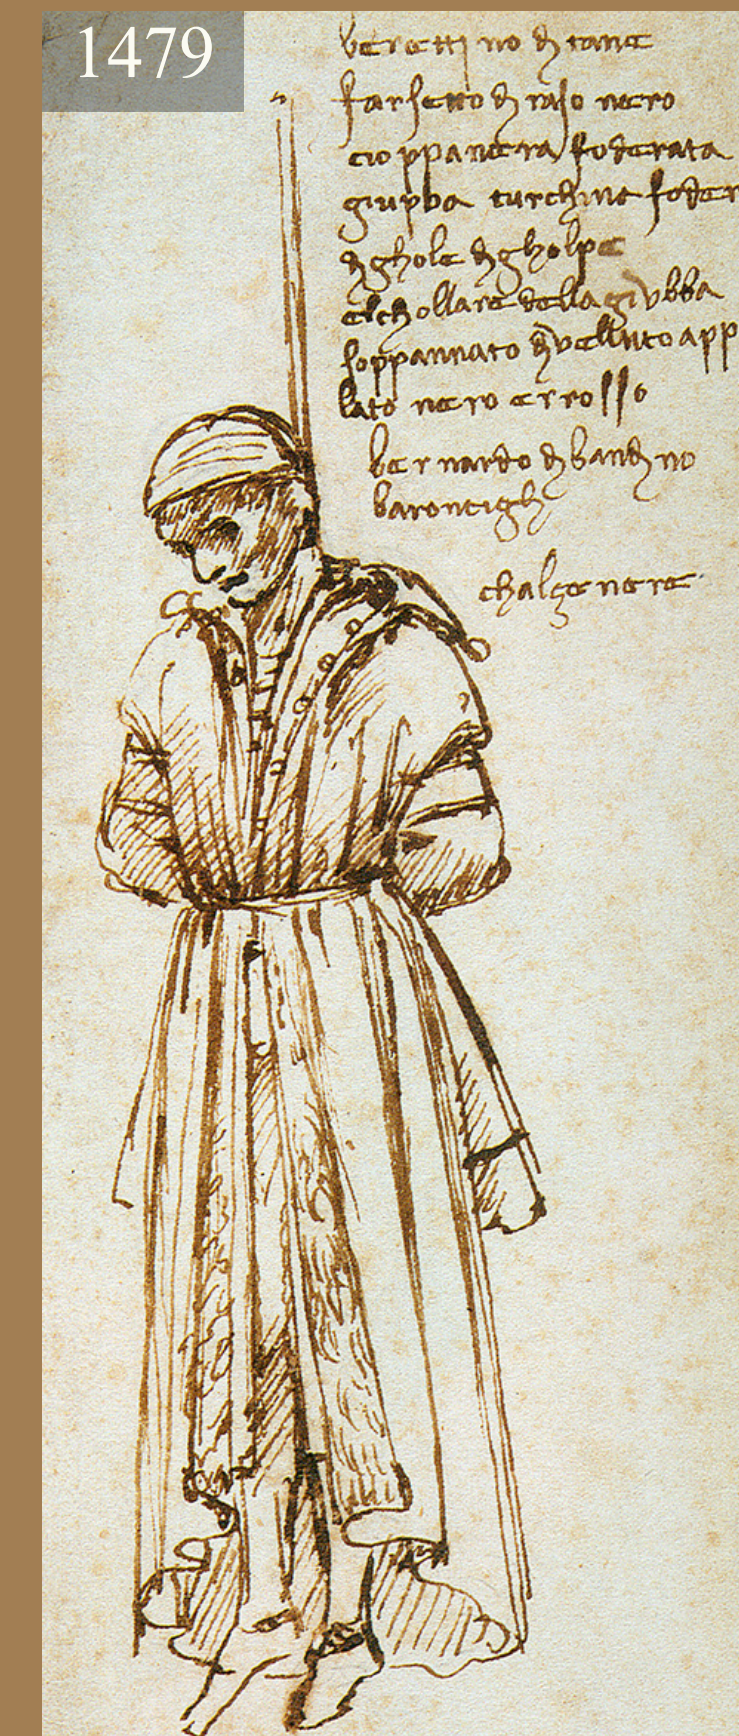 1479
berettino di tane
farsetto di raso nero
cioppa nera foderata
giupba turchina foder
di ghole di gholpe
elchollare della giubba
soppannato di velluto app
lato nero e rosso
bernardo di bandino
barontigli
chalze nere